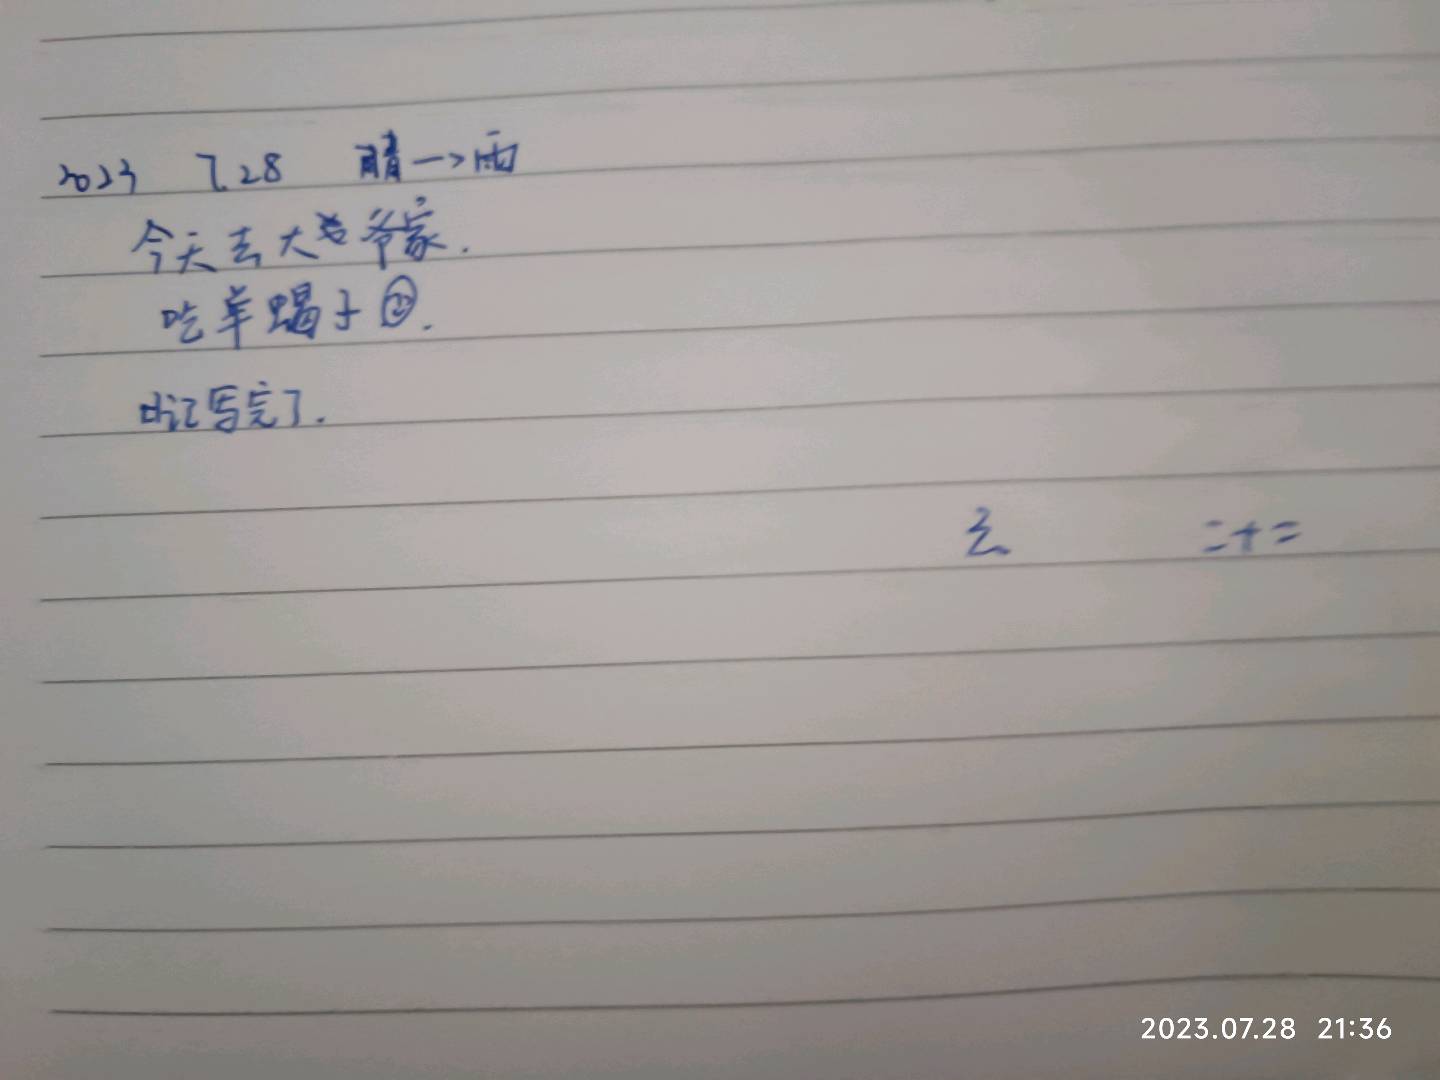 2023 7.28 晴→雨
今天去大爷家.
吃羊蝎子☺.
日记写完了.
二十二
2023.07.28 21:36